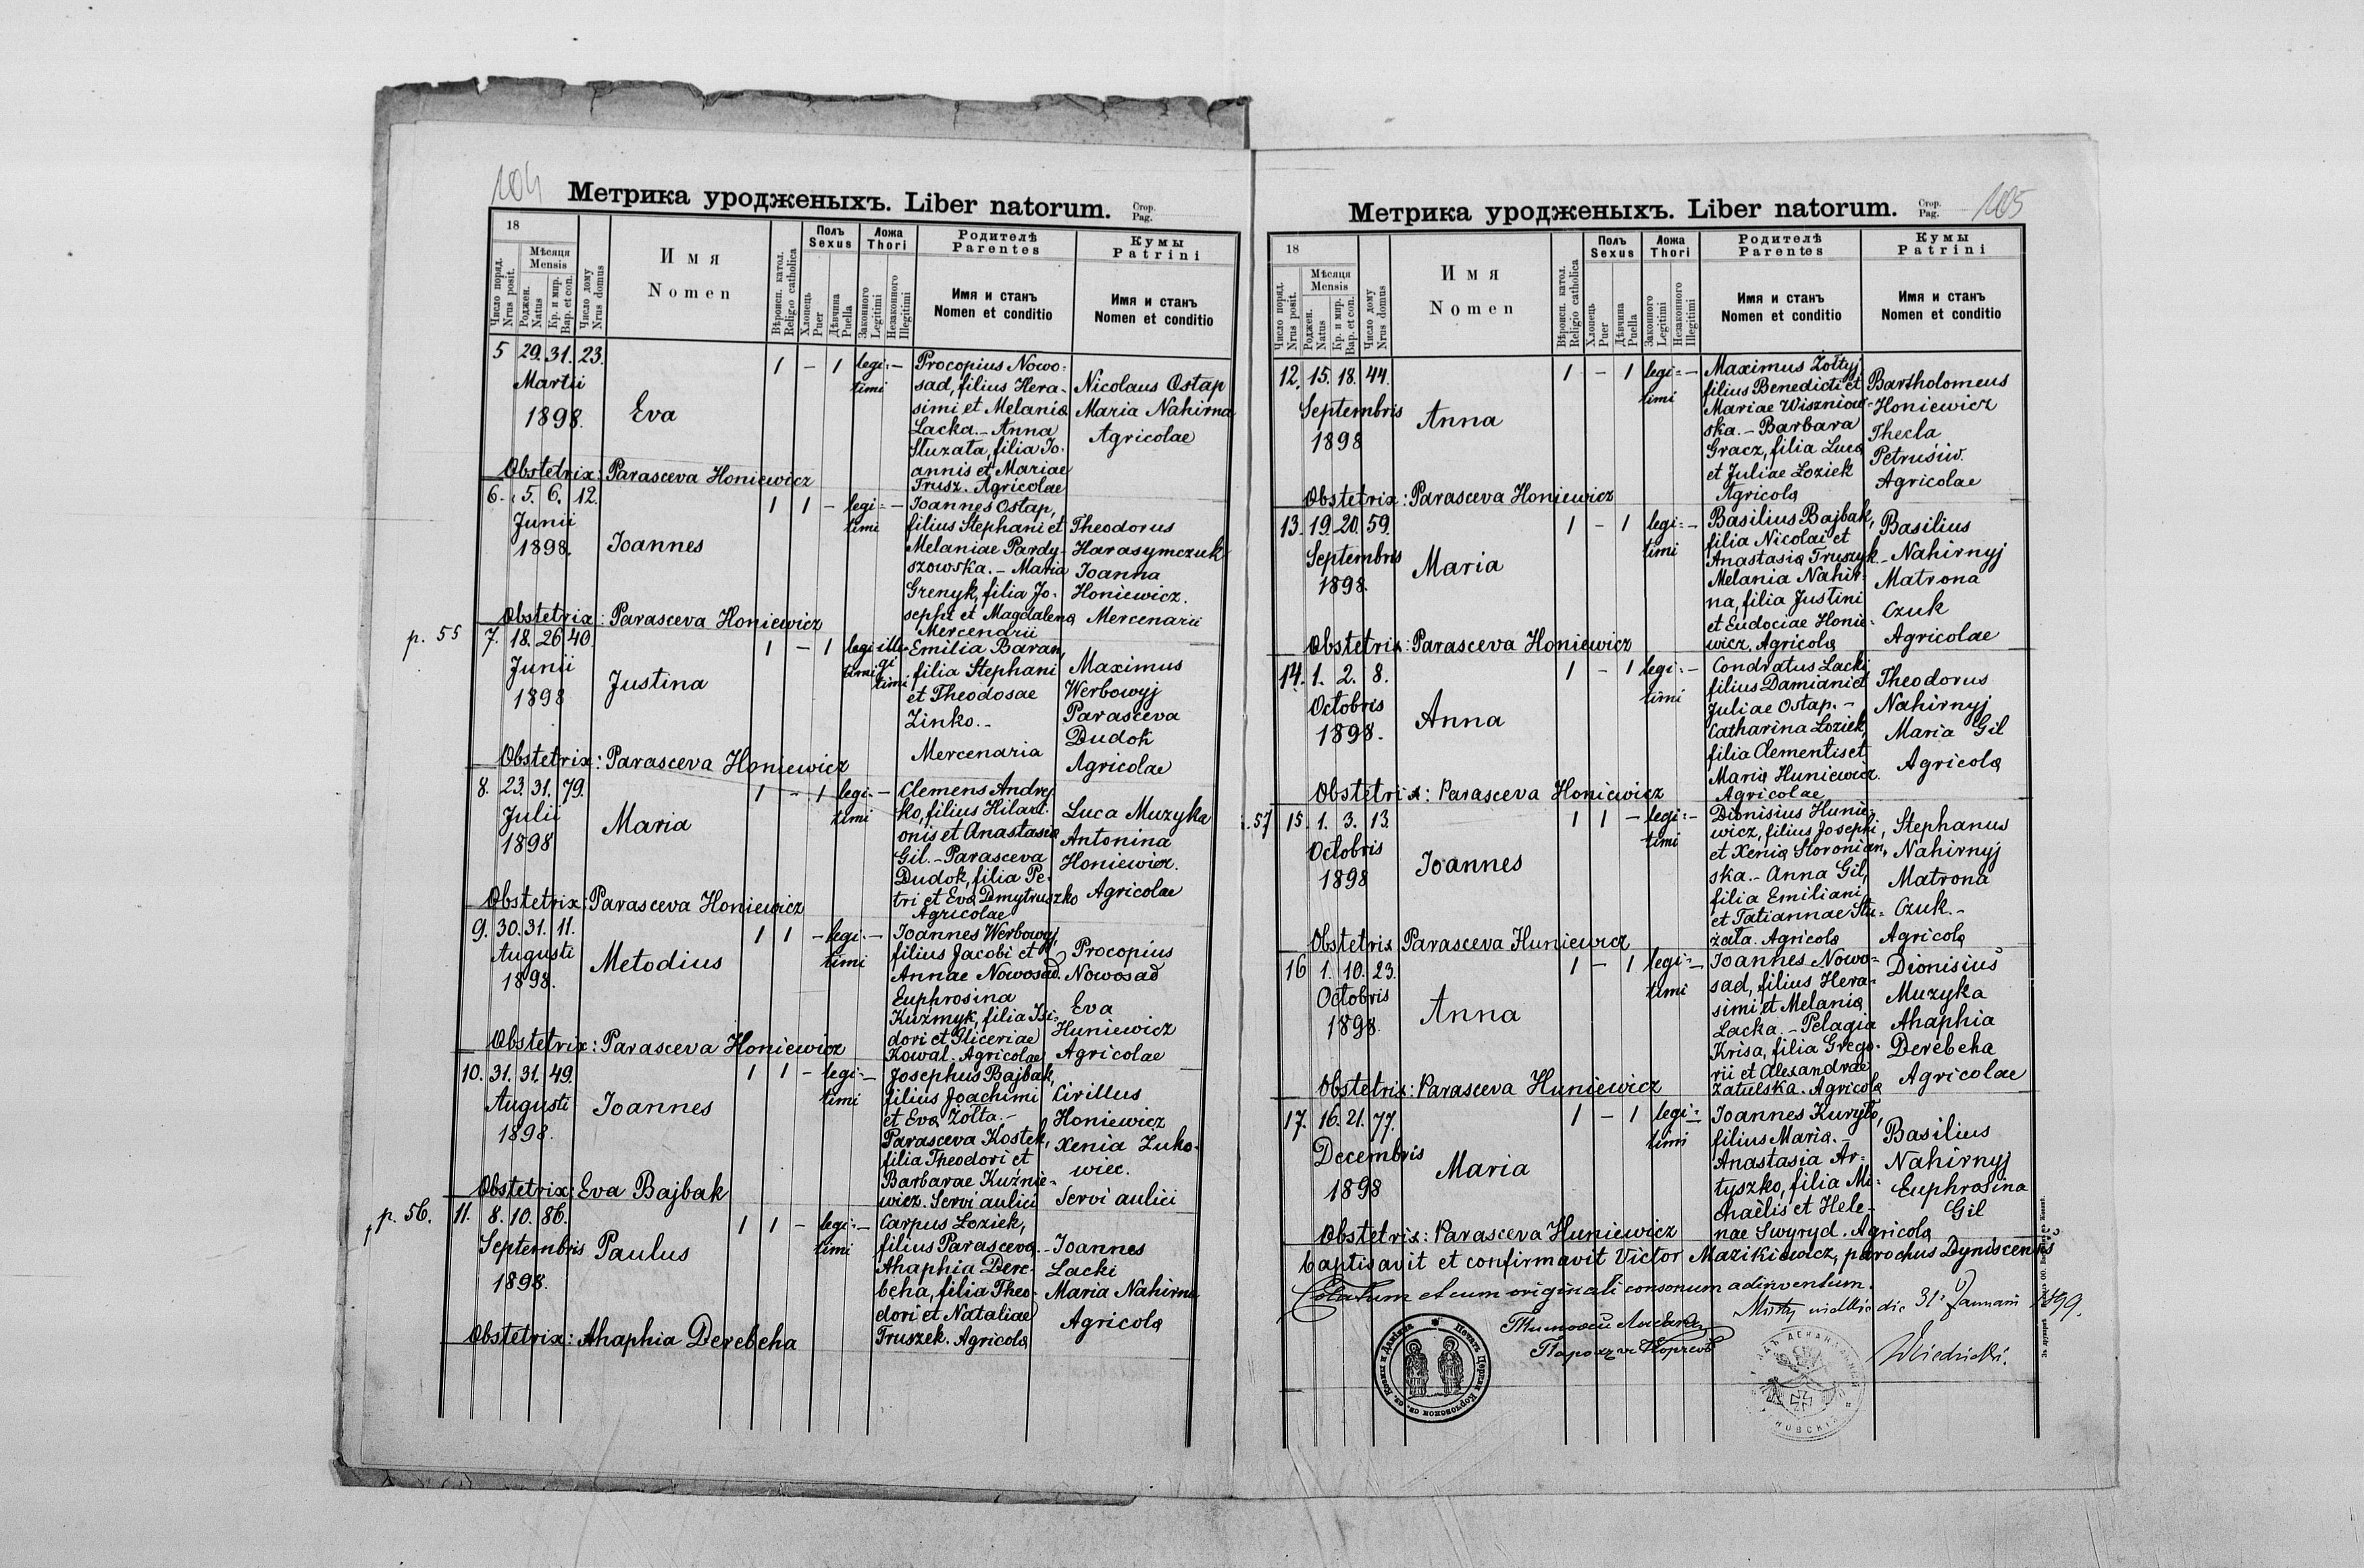 104
Метрика уродженыхъ. Liber natorum.
Стор.
Pag.
18
Число поряд.
Nrus posit.
Мѣсяця
Mensis
Роджен.
Natus
Кр. и мир.
Bap. et con.
Число дому
Nrus domus
Имя
Nomen
Вѣроисп. катол.
Religio catholica
Полъ
Sexus
Хлопець
Puer
Дѣвчина
Puella
Ложа
Thori
Законного
Legitimi
Незаконного
Illegitimi
Родителѣ
Parentes
Имя и станъ
Nomen et conditio
Кумы
Patrini
Имя и станъ
Nomen et conditio
5 29. 31. 23.
Martii
1898.
Eva
1 - 1 legi= -
timi
Procopius Nowo=
sad, filius Hera-
simi et Melaniæ
Lacka. - Anna
Sluzata, filia Jo.
annis et Mariae
Trusz. Agricolae
Nicolaus Ostap
Maria Nahirna
Agricolae
Obstetrix: Parasceva Honiewicz
6. 5. 6. 12.
Junii
1898.
Joannes
1 1 - legi= -
timi
Joannes Ostap,
filius Stephani et
Melaniae Pardy-
szowska. - Maria
Grenyk, filia Jo-
sephi et Magdalenæ
Mercenarii
Theodorus
Harasymczuk
Joanna
Honiewicz.
Mercenarii
Obstetrix: Parasceva Honiewicz
p. 55
7. 18. 26. 40.
Junii
1898
Justina
1 - 1 legi ille-
timi gi
timi
Emilia Baran,
filia Stephani
et Theodosae
Zinko. -
Mercenaria
Maximus
Werbowyj
Parasceva
Dudok
Agricolae
Obstetrix: Parasceva Honiewicz
8. 23. 31. 79.
Julii
1898
Maria
1 - 1 legi= -
timi
Clemens Andrej
ko, filius Hilari
onis et Anastasiæ
Gil. - Parasceva
Dudok, filia Pe-
tri et Evæ Dmytruszko
Agricolae
Luca Muzyka
Antonina
Honiewicz.
Agricolae
Obstetrix: Parasceva Honiewicz
9. 30. 31. 11.
Augusti
1898.
Metodius
1 1 - legi= -
timi
Joannes Werbowyj,
filius Jacobi et
Annae Nowosad.
Euphrosina
Kuzmyk, filia Isi-
dori et Gliceriae
Kowal. Agricolae
Procopius
Nowosad
Eva
Huniewicz
Agricolae
Obstetrix: Parasceva Honiewicz
10. 31. 31. 49.
Augusti
1898.
Joannes
1 1 - legi= -
timi
Josephus Bajbak,
filius Joachimi
et Evæ Żołta. -
Parasceva Kostek,
filia Theodori et
Barbarae Kuźnie-
wicz. Servi aulici
Cirillus
Honiewicz
Xenia Zuko-
wiec.
Servi aulici
Obstetrix: Eva Bajbak
p. 56.
11. 8. 10. 86.
Septembris
1898.
Paulus
1 1 - legi= -
timi
Carpus Loziek,
filius Parascevæ. -
Ahaphia Dere-
beha, filia Theo-
dori et Nataliae
Truszek. Agricolæ
Joannes
Lacki
Maria Nahirna
Agricolæ
Obstetrix: Ahaphia Derebeha
105
Метрика уродженыхъ. Liber natorum.
Стор.
Pag.
18
Число поряд.
Nrus posit.
Мѣсяця
Mensis
Роджен.
Natus
Кр. и мир.
Bap. et con.
Число дому
Nrus domus
Имя
Nomen
Вѣроисп. катол.
Religio catholica
Полъ
Sexus
Хлопець
Puer
Дѣвчина
Puella
Ложа
Thori
Законного
Legitimi
Незаконного
Illegitimi
Родителѣ
Parentes
Имя и станъ
Nomen et conditio
Кумы
Patrini
Имя и станъ
Nomen et conditio
12. 15. 18. 44.
Septembris
1898
Anna
1 - 1 legi= -
timi
Maximus Żołtyj
filius Benedicti et
Mariae Wiszniow-
ska. - Barbara
Gracz, filia Lucæ
et Juliae Loziek
Agricolæ
Bartholomeus
Honiewicz
Thecla
Petrusiw.
Agricolae
Obstetrix: Parasceva Honiewicz
13. 19. 20. 59.
Septembris
1898.
Maria
1 - 1 legi= -
timi
Basilius Bajbak,
filia Nicolai et
Anastasiæ Truszyk. -
Melania Nahir-
na, filia Justini
et Eudociae Honie-
wicz, Agricolæ
Basilius
Nahirnyj
Matrona
Czuk
Agricolae
Obstetrix: Parasceva Honiewicz
14. 1. 2. 8.
Octobris
1898.
Anna
1 - 1 legi= -
timi
Condratus Lacki
filius Damiani et
Juliae Ostap. -
Catharina Loziek,
filia Clementis et
Mariæ Huniewicz.
Agricolae
Theodorus
Nahirnyj
Maria Gil
Agricolæ
Obstetrix: Parasceva Honiewicz
57
15. 1. 3. 13.
Octobris
1898
Joannes
1 1 - legi= -
timi
Dionisius Hunie-
wicz, filius Josephi,
et Xeniæ Storonian,
ska. - Anna Gil,
filia Emiliani
et Tatiannae Stu=
żata. Agricolæ
Stephanus
Nahirnyj
Matrona
Czuk. -
Agricolæ
Obstetrix Parasceva Huniewicz
16 1. 10. 23.
Octobris
1898.
Anna
1 - 1 legi= -
timi
Joannes Nowo=
sad, filius Hera-
simi et Melaniæ
Lacka. - Pelagia
Krisa, filia Grego-
rii et Alexandrae
Zatulska. Agricolæ
Dionisius
Muzyka
Ahaphia
Derebeha
Agricolae
Obstetrix: Parasceva Huniewicz
17. 16. 21. 77.
Decembris
1898
Maria
1 - 1 legi= -
timi
Joannes Kuryło,
filius Mariæ. -
Anastasia Ar=
tyszko, filia Mi-
chaëlis et Hele-
nae Swyryd. Agricolæ
Basilius
Nahirnyj
Euphrosina
Gil
Obstetrix: Parasceva Huniewicz
baptisavit et confirmavit Victor Mazikiewicz, parochus Dyniscensis
Colatum et cum originali consonum adinventum.
die 31. Januarii 1899.